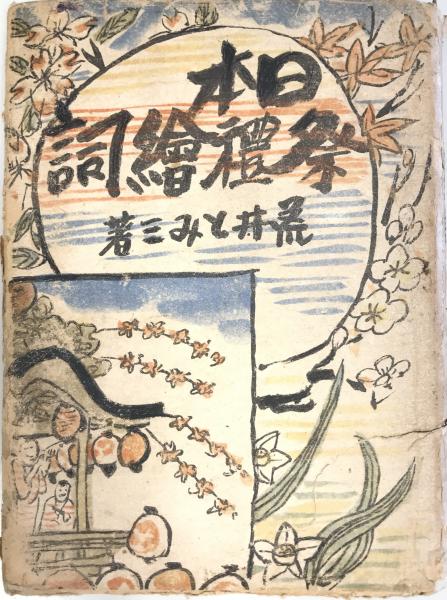 日本
祭禮繪詞
荒井とみ三著